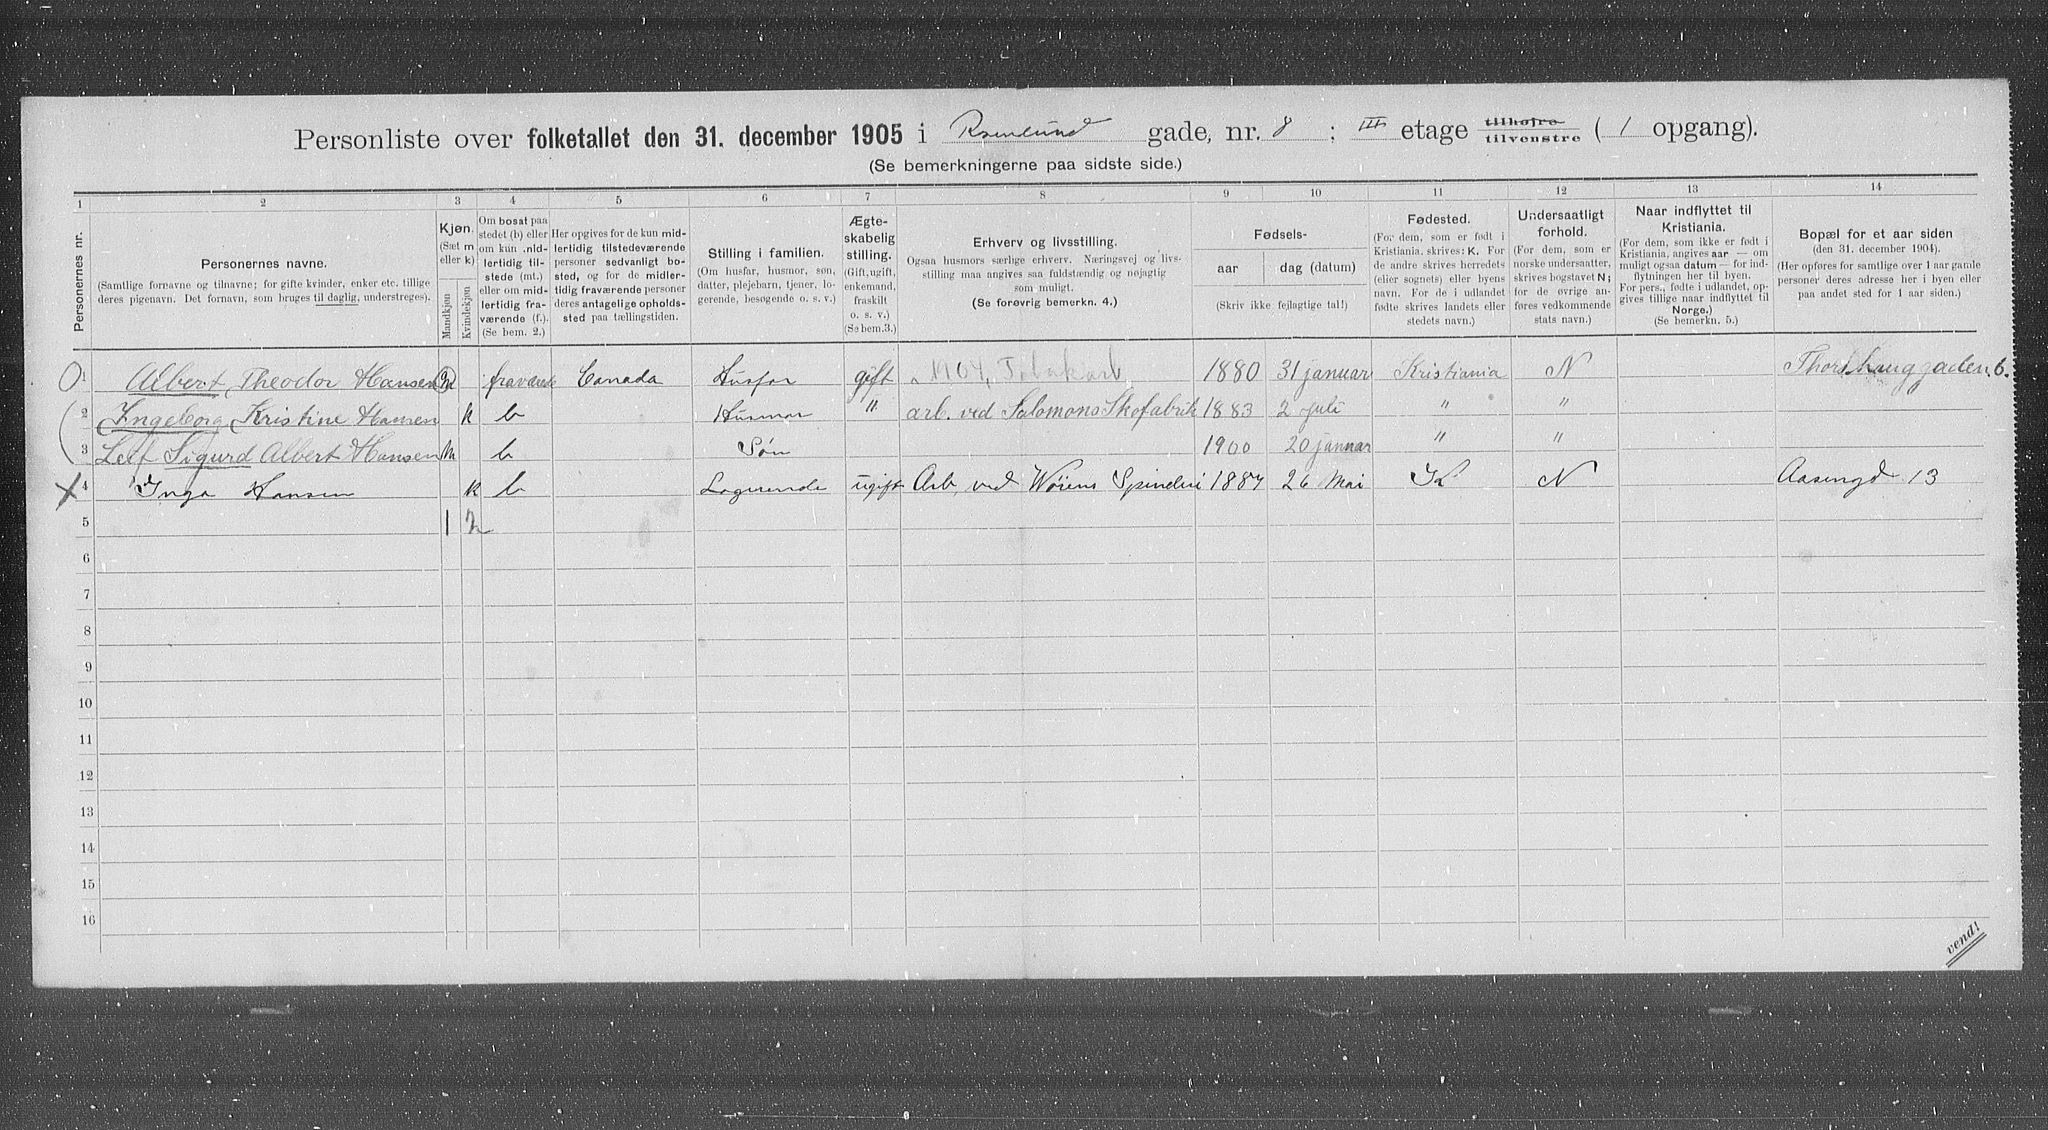 Personliste over folketallet den 31. december 1905 i Rosenlund gade, nr. 8 ; III etage tilhøjre tilvenstre ( 1 opgang).
(Se bemerkningerne paa sidste side.)
1 2 3 4 5 6 7 8 9 10 11 12 13 14
Personernes nr.
Personernes navne.
(Samtlige fornavne og tilnavne; for gifte kvinder, enker etc. tillige
deres pigenavn. Det fornavn, som bruges til daglig, understreges).
Kjøn.
(Sæt m
eller k)
Mandkjøn
Kvindekjøn
Om bosat paa
stedet (b) eller
om kun midlertidig
tilstede (mt.)
eller om midlertidig
fraværende (f.).
(Se bem. 2.)
Her opgives for de kun midlertidig
tilstedeværende
personer sedvanligt bosted,
og for de midlertidig
fraværende personer
deres antagelige opholdssted
paa tællingstiden.
Stilling i familien.
(Om husfar, husmor, søn,
datter, plejebarn, tjener, logerende,
besøgende o. s. v.)
Ægteskabelig
stilling.
(Gift, ugift,
enkemand,
fraskilt
o. s. v.)
(Se bem. 3.)
Erhverv og livsstilling.
Ogsaa husmors særlige erhverv. Næringsvej og livsstilling
maa angives saa fuldstændig og nøjagtig
som muligt.
(Se forøvrig bemerkn. 4.)
Fødsels-
aar dag (datum)
(Skriv ikke fejlagtige tal!)
Fødested.
(For dem, som er født i
Kristiania, skrives: K. For
de andre skrives herredets
(eller sognets) eller byens
navn. For de i udlandet
fødte skrives landets eller
stedets navn.)
Undersaatligt
forhold.
(For dem, som er
norske undersaatter,
skrives bogstavet N;
for de øvrige anføres
vedkommende
stats navn.)
Naar indflyttet til
Kristiania.
(For dem, som ikke er født i
Kristiania, angives aar — om
muligt ogsaa datum — for indflytningen
her til byen.
For pers., fødte i udlandet, opgives
tillige naar indflyttet til
Norge.)
(Se bemerkn. 5.)
Bopæl for et aar siden
(den 31. december 1904).
(Her opføres for samtlige over 1 aar gamle
personer deres adresse her i byen eller
paa andet sted for 1 aar siden.)
1 Albert Theodor Hansen m Canada Husfar gift 1904, Tobakarb 1880 31 januar Kristiania N Thorshauggaden 6.
2 Ingeborg Kristine Hansen k b Husmor " arb. ved Salomons Skofabrik 1883 2 juli " "
3 Leif Sigurd Albert Hansen m b Søn 1900 20 januar " "
4 Inga Hansen k b Logerende ugift Arb. ved Wøiens Spinderi 1887 26 Mai K N Aasengd 13
5 1 2
6
7
8
9
10
11
12
13
14
15
16
vend!